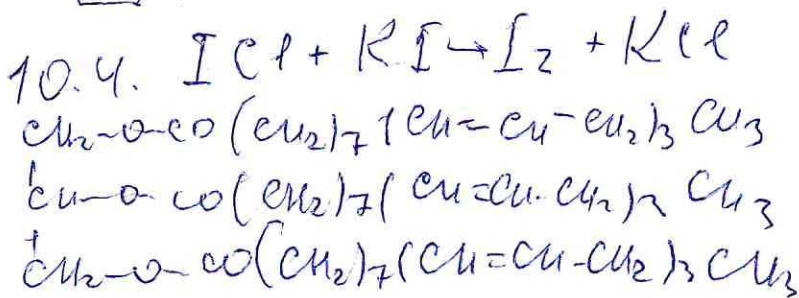 10.4. ICl + KI → I2 + KCl
CH2-O-CO(CH2)7(CH=CH-CH2)3CH3
CH-O-CO(CH2)7(CH=CH-CH2)3CH3
CH2-O-CO(CH2)7(CH=CH-CH2)3CH3